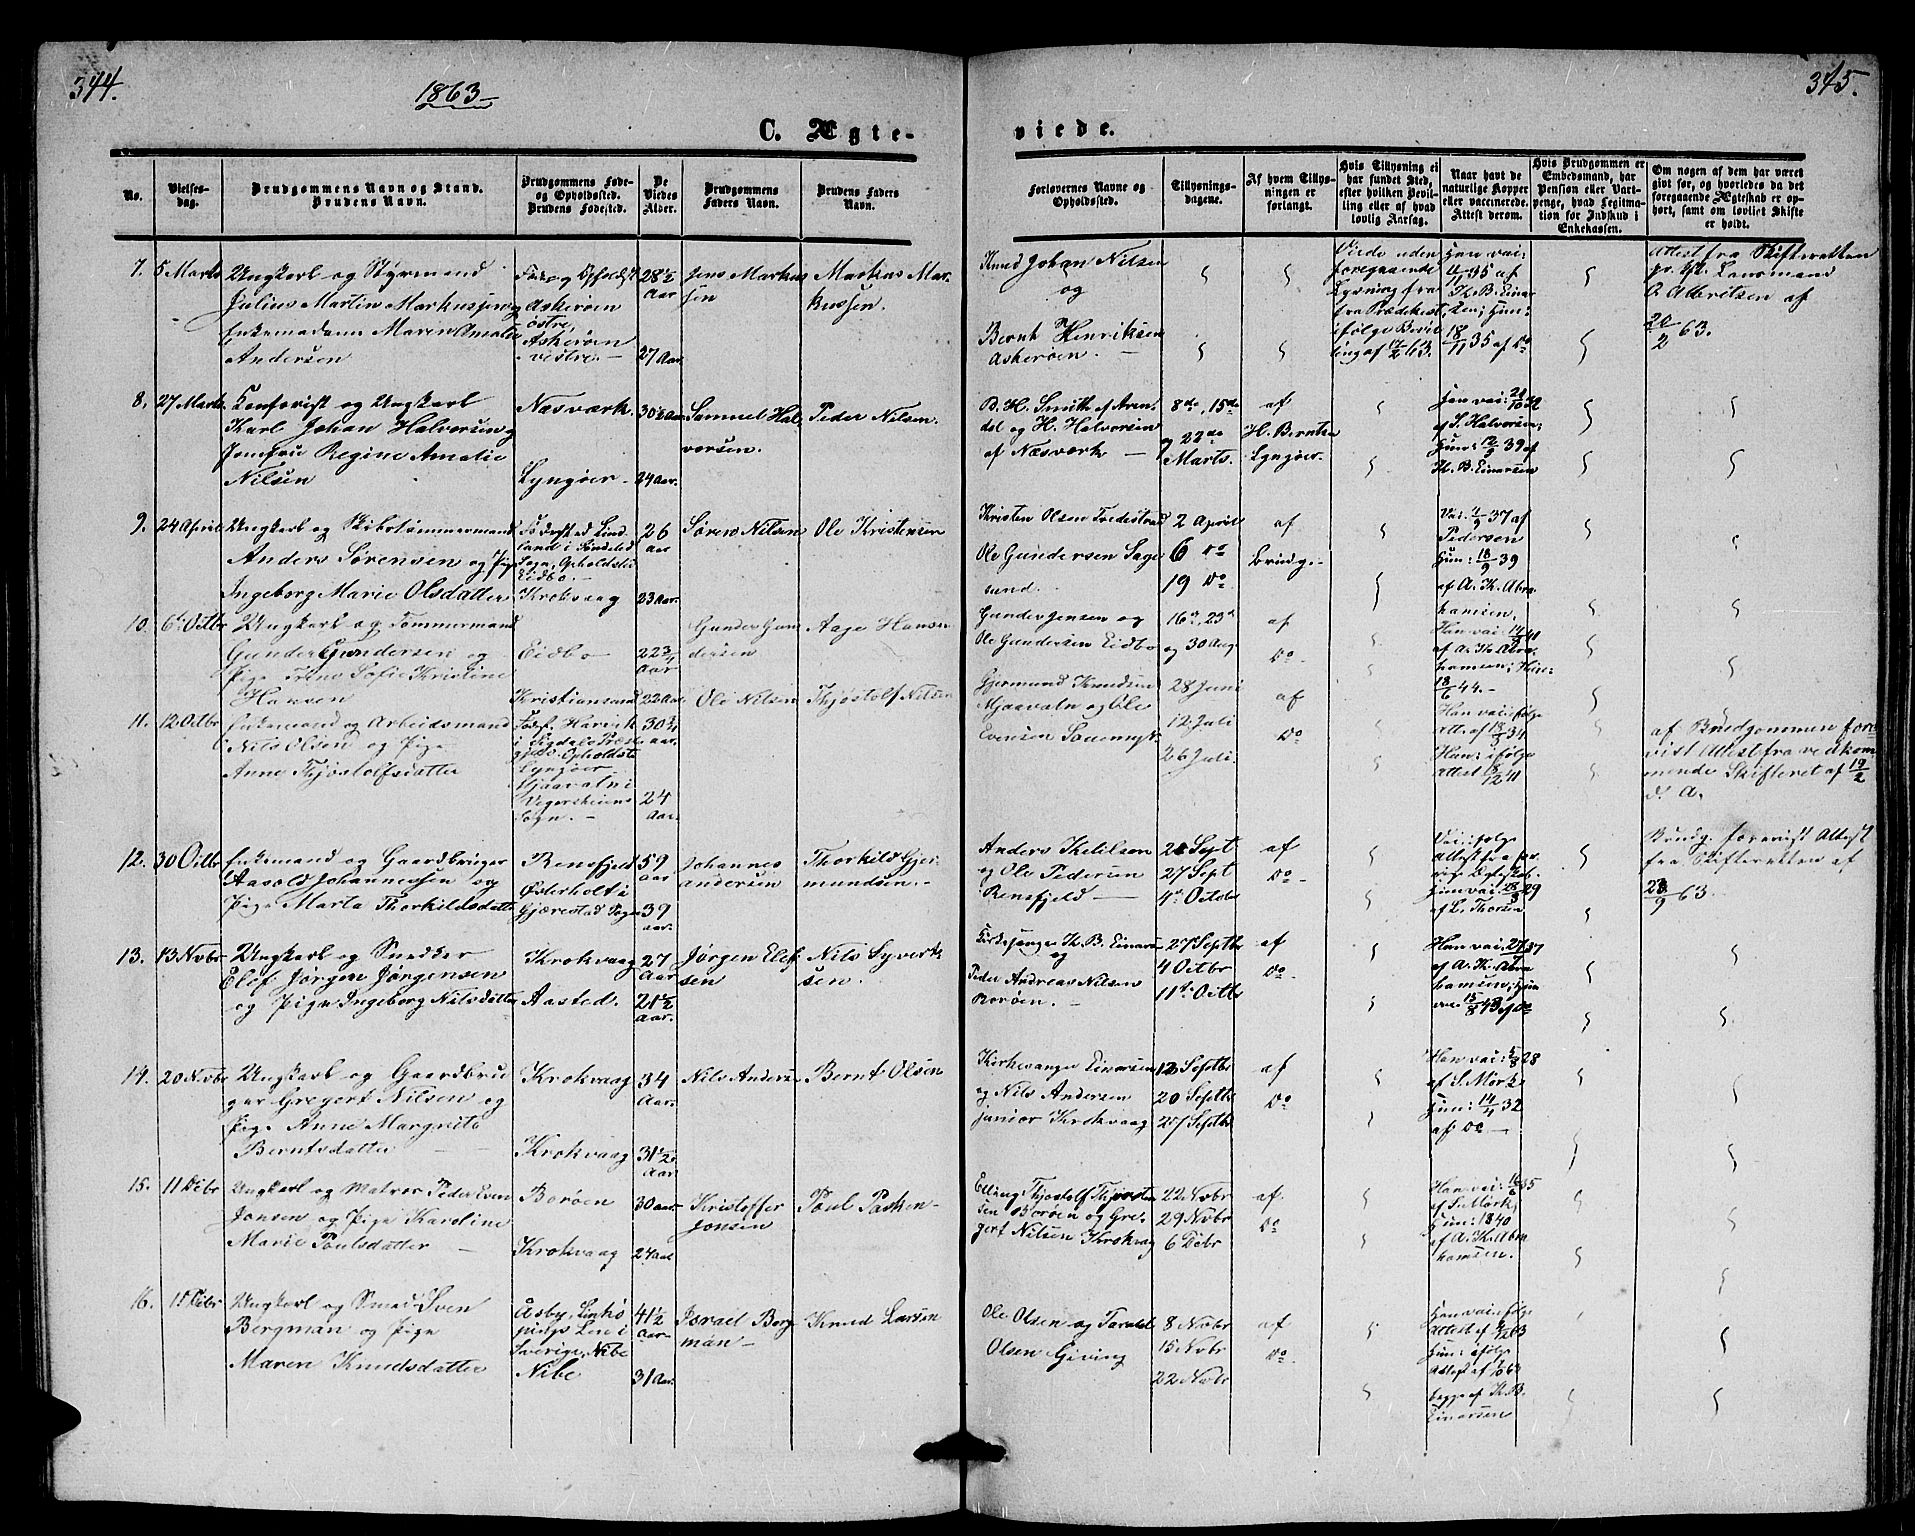 344.
1863
345.
C. Ægte-
viede.
No.
Vielses-
dag.
Brudgommens Navn og Stand.
Brudens Navn.
Brudgommens Føde-
og Opholdssted.
Brudens Fødested.
De
Viedes
Alder.
Brudgommens
Faders Navn.
Brudens Faders
Navn.
Forlovernes Navne og
Opholdssted.
Tillysnings-
dagene.
Af hvem Tillys-
ningen er
forlangt.
Hvis Tillysning ei
har fundet Sted,
efter hvilken Bevil-
ling eller af hvad
lovlig Aarsag.
Naar havt de
naturlige Kopper
eller vaccinerede.
Attest derom.
Hvis Brudgommen er
Embedsmand, har
Pension eller Vart-
penge, hvad Legitima-
tion for Indskud i
Enkekassen.
Om nogen af dem har været
givt før, og hvorledes da det
foregaaende Ægteskab er op-
hørt, samt om lovligt Skifte
er holdt.
7. 5 Marts
Ungkarl og Styrmand
Julius Martin Markussen og
Enkemadame Maren Amalie
Andersen
Askerøen
østre,
Askerøen
vestre.
28 1/2
Aar
27 Aar.
Jens Markus
sen
Markus Mar-
kussen.
Knud Johan Nilsen
og
Bernt Henriksen
Askerøen.
Viede uden
foregaaende
Lysning fra
Prædikest.
ifølge Bevil
ling af 63.
35 af
Th. B. Einar
sen; Hun:
18/11 35 af Do
Attest fra Skifteretten
Lensmand
Albritsen af
20/2 63.
8. 27 Marts
Kontorist og Ungkarl
Karl Johan Halvorsen og
Jomfrue Regine Amalie
Nilsen
Næsværk.
Lyngøer
30 1/2 Aar
24 Aar.
Samuel Hal
vorsen.
Peder Nilsen.
B. H. Smith af Aren-
dal og H. Halvorsen
af Næsværk
8de, 15de
og 22de
Marts.
af
H. Berntsen
Lyngøer.
Han vai:
af S. Halvorsen;
Hun: 12/9 39 af
Th. B. Einarsen
9. 24 April
Ungkarl og Skibstømmermand
Anders Sørensen og Pige
Ingeborg Marie Olsdatter
Fødested Lind
land i Søndeled
Sogn, Opholdsted
Eidbo.
Krokvaag
26
Aar
23 Aar.
Søren Nilsen
Ole Kristensen
Kristen Olsen Tvedestrand
Ole Gundersen Sage
sund.
2 April
6 Do
19 Do
af
Brudg.
Vai. 1/9 37 af
Pedersen
Hun: 18/9 39
af A. K. Abra
hamsen.
10. 6te Octbr
Ungkarl og Tømmermand
Gunder Gundersen og
Pige Trine Sofie Kristine
Hansen
Eidbo
Kristiansand
22 3/4
Aar
22 Aar
Gunder Gun
dersen
Aage Hansen
Gunder Jensen og
Ole Gundersen Eidbo
16de, 23de
og 30 Aug
af
Do
Han vai: 14/9 40
af A. K. Abra
hamsen; Hun:
18/6 44.
11. 12 Octbr
Enkemand og Arbeidsmand
Nils Olsen og Pige
Anne Thjøstolfsdatter
i Sigdals Præste
gjeld. Opholdsted
Lyngøer
Mjaavatn i
Vegersheiens
Sogn.
30 3/4
Aar.
24
Aar.
Ole Nilsen
Thjøstolf Nilsen
Gjermund Knudsen
Mjaavatn og Ole
Evensen
28 Juni
12 Juli
26 Juli.
af
Do
Han vai: ifølge
att. af 34
Hun: ifølge
Attest 18/12 41
af Brudgommen fore
vist Attest fra vedkom
mende Skifteret af 19/2
d. A.
12. 30 Octbr
Enkemand og Gaardbruger
Aasold Johannessen og
Pige Marta Thorkildsdatter
Rensfjeld
Østerholt i
Gjerestad Sogn
59
Aar
39
Aar.
Johannes
Andersen
Thorkild Gjer
mundsen.
Anders Ketilsen
og Ole Pedersen
Rensfjeld
20 Sept
27 Sept
4de Octobr
af
Do
Vai: ifølge
Attest fra
Hun: 28/8 29
af L. Thorsen
Brudg. forevist Attest
fra Skifteretten af
23/9 63.
13. 13 Novbr
Ungkarl og Snedker
Elef Jørgen Jørgensen
og Pige Ingeborg Nilsdatter
Krokvaag
Aasted.
27
Aar
21 1/2
Aar.
Jørgen Elef
sen
Nils Syvert
sen.
Kirkesanger Th. B. Einarsen
og
Peder Andreas Nilsen
Borøen.
27 Septbr
4 Octbr
11te Octbr
af
Do
Han vai: 37
af A. K. Abra
hamsen; Hun
15/8 43 af Do
14. 20 Novbr
Ungkarl og Gaardbru
ger Gregert Nilsen og
Pige Anne Margrete
Berntsdatter
Krokvaag
Krokvaag
34
Aar.
31 1/2
Aar
Nils Andersen
Bernt Olsen
Kirkesanger Einarsen
og Nils Andersen
junior Krokvaag
13 Septbr
20 Septbr
27 Septbr
af
Do
Han vai: 28
af S. Mørk
Hun: 14/4 32
af Do
15. 11 Decbr
Ungkarl og Matros Peder Sven
Jonsen og Pige Karoline
Marie Poulsdatter
Borøen
Krokvaag
30 Aar
24 Aar
Kristoffer
Jonsen
Poul
Elling Thjøstolf Thorsten
sen Borøen og Gre-
gert Nilsen Krokvaag
22 Novbr
29 Novbr
6 Decbr
af
Do
Han vai: 35
af S. Mørk;
Hun: 1840
af A. K. Abra
hamsen.
16.
Ungkarl og Smed Sven
Bergman og Pige
Maren Knudsdatter
Åsby, Linkö
pings Len i
Sverige, Nibe
Nibe
41 1/2
Aar.
31 Aar.
Israel Berg
man
Knud Larsen
Ole Olsen og Tarald
Olsen Giving
8 Novbr
15 Novbr
22 Novbr
af
Do
Han vai: ifølge
Attest af 63
Hun: ifølge
Attest af 63
begge af Th. B.
Einarsen